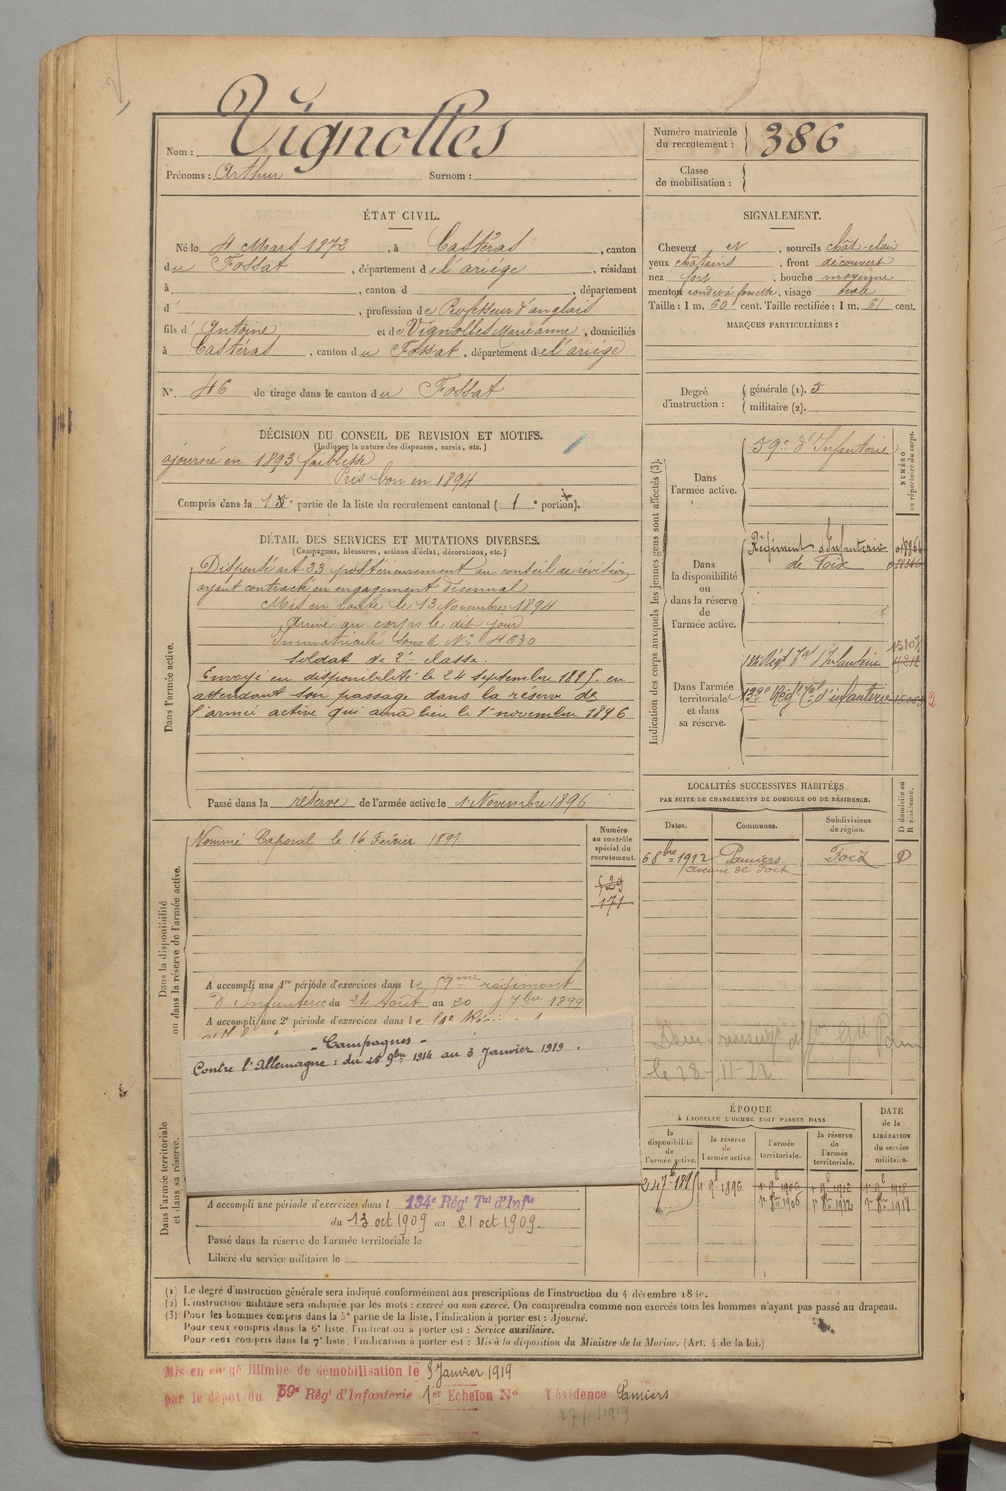 Nom : Vignolles
Prénoms : Arthur Surnom :
Numéro matricule du recrutement : 386
Classe de mobilisation :
ÉTAT CIVIL.
Né le 4 Mars 1872, à Castéras, canton
du Fossat, département de l'ariége, résidant
à , canton d , département
d' , profession de Professeur d'anglais
fils d' Antoine et de Vignolles Marianne, domiciliés
à Castéras, canton du Fossat, département de l'ariége
N°. 46 de tirage dans le canton du Fossat
SIGNALEMENT.
Cheveux et , sourcils chât-clair
yeux chatains, front découvert
nez fort, bouche moyenne
menton rond et à fossette, visage ovale
Taille : 1 m. 60 cent. Taille rectifiée : 1 m. 61 cent.
MARQUES PARTICULIÈRES :
Degré d'instruction :
générale (1). 5
militaire (2).
DÉCISION DU CONSEIL DE REVISION ET MOTIFS.
(Indiquer la nature des dispenses, sursis, etc.)
ajourné en 1893 faiblesse
Pris bon en 1894
Compris dans la 1e partie de la liste du recrutement cantonal ( 1e portion).
DÉTAIL DES SERVICES ET MUTATIONS DIVERSES.
(Campagnes, blessures, actions d'éclat, décorations, etc.)
Dans l'armée active.
Dispensé art. 23 postérieurement au conseil de révision
ayant contracté un engagement décennal
Mis en route le 13 Novembre 1894
Arrivé au corps le dit jour
Immatriculé sous le N° 4630
Soldat de 2e classe.
Envoyé en disponibilité le 24 septembre 1895 en
attendant son passage dans la réserve de
l'armée active qui aura lieu le 1er novembre 1896
Passé dans la réserve de l'armée active le 1. Novembre 1896
Indication des corps auxquels les jeunes gens sont affectés (3).
NUMÉRO au répertoire du corps.
Dans l'armée active.
59e d'Infanterie
Dans la disponibilité ou dans la réserve de l'armée active.
Régiment d'Infanterie
de Foix
Dans l'armée territoriale et dans sa réserve.
Régt Tal Infanterie
Régt d'infanterie
Dans la disponibilité ou dans la réserve de l'armée active.
Nommé Caporal le 16 Février 1897.
Numéro au contrôle spécial du recrutement.
529
171
A accompli une 1re période d'exercices dans le 59me régiment
d'Infanterie du 24 Aout au 20 7bre 1899
A accompli une 2e période d'exercices dans le
- Campagnes -
Contre l'Allemagne : du 9bre 1914 au 3 Janvier 1919.
LOCALITÉS SUCCESSIVES HABITÉES
PAR SUITE DE CHANGEMENTS DE DOMICILE OU DE RÉSIDENCE.
Dates. Communes. Subdivisions de région. D domicile ou R résidence.
6 8bre 1912 Pamiers Foix D
avenue de Foix
le 28-11-22
ÉPOQUE
À LAQUELLE L'HOMME DOIT PASSER DANS
DATE de la LIBÉRATION du service militaire.
la disponibilité de l'armée active.
la réserve de l'armée active.
l'armée territoriale.
la réserve de l'armée territoriale.
24 7b 1895 1r 9b 1896 1r 9b 1906 1r 9b 1912 1r 9b 1918
1r 8bre 1906 1r 8bre 1912 1r 8bre 1918
Dans l'armée territoriale et dans sa réserve.
A accompli une période d'exercices dans l 134e Régt Tal d'Infie
du 13 oct 1909 au 21 oct 1909.
Passé dans la réserve de l'armée territoriale le
Libéré du service militaire le
(1) Le degré d'instruction générale sera indiqué conformément aux prescriptions de l'instruction du 4 décembre
(2) L'instruction militaire sera indiquée par les mots : exercé ou non exercé. On comprendra comme non exercés tous les hommes n'ayant pas passé au drapeau.
(3) Pour les hommes compris dans la 5e partie de la liste, l'indication à porter est : Ajourné.
Pour ceux compris dans la 6e liste, l'indication à porter est : Service auxiliaire.
Pour ceux compris dans la 7e liste, l'indication à porter est : Mis à la disposition du Ministre de la Marine. (Art. 4 de la loi.)
Mis en congé illimité de démobilisation le 3 Janvier 1919
par le dépot du 59e Régt d'Infanterie 1er Echelon N° résidence Pamiers